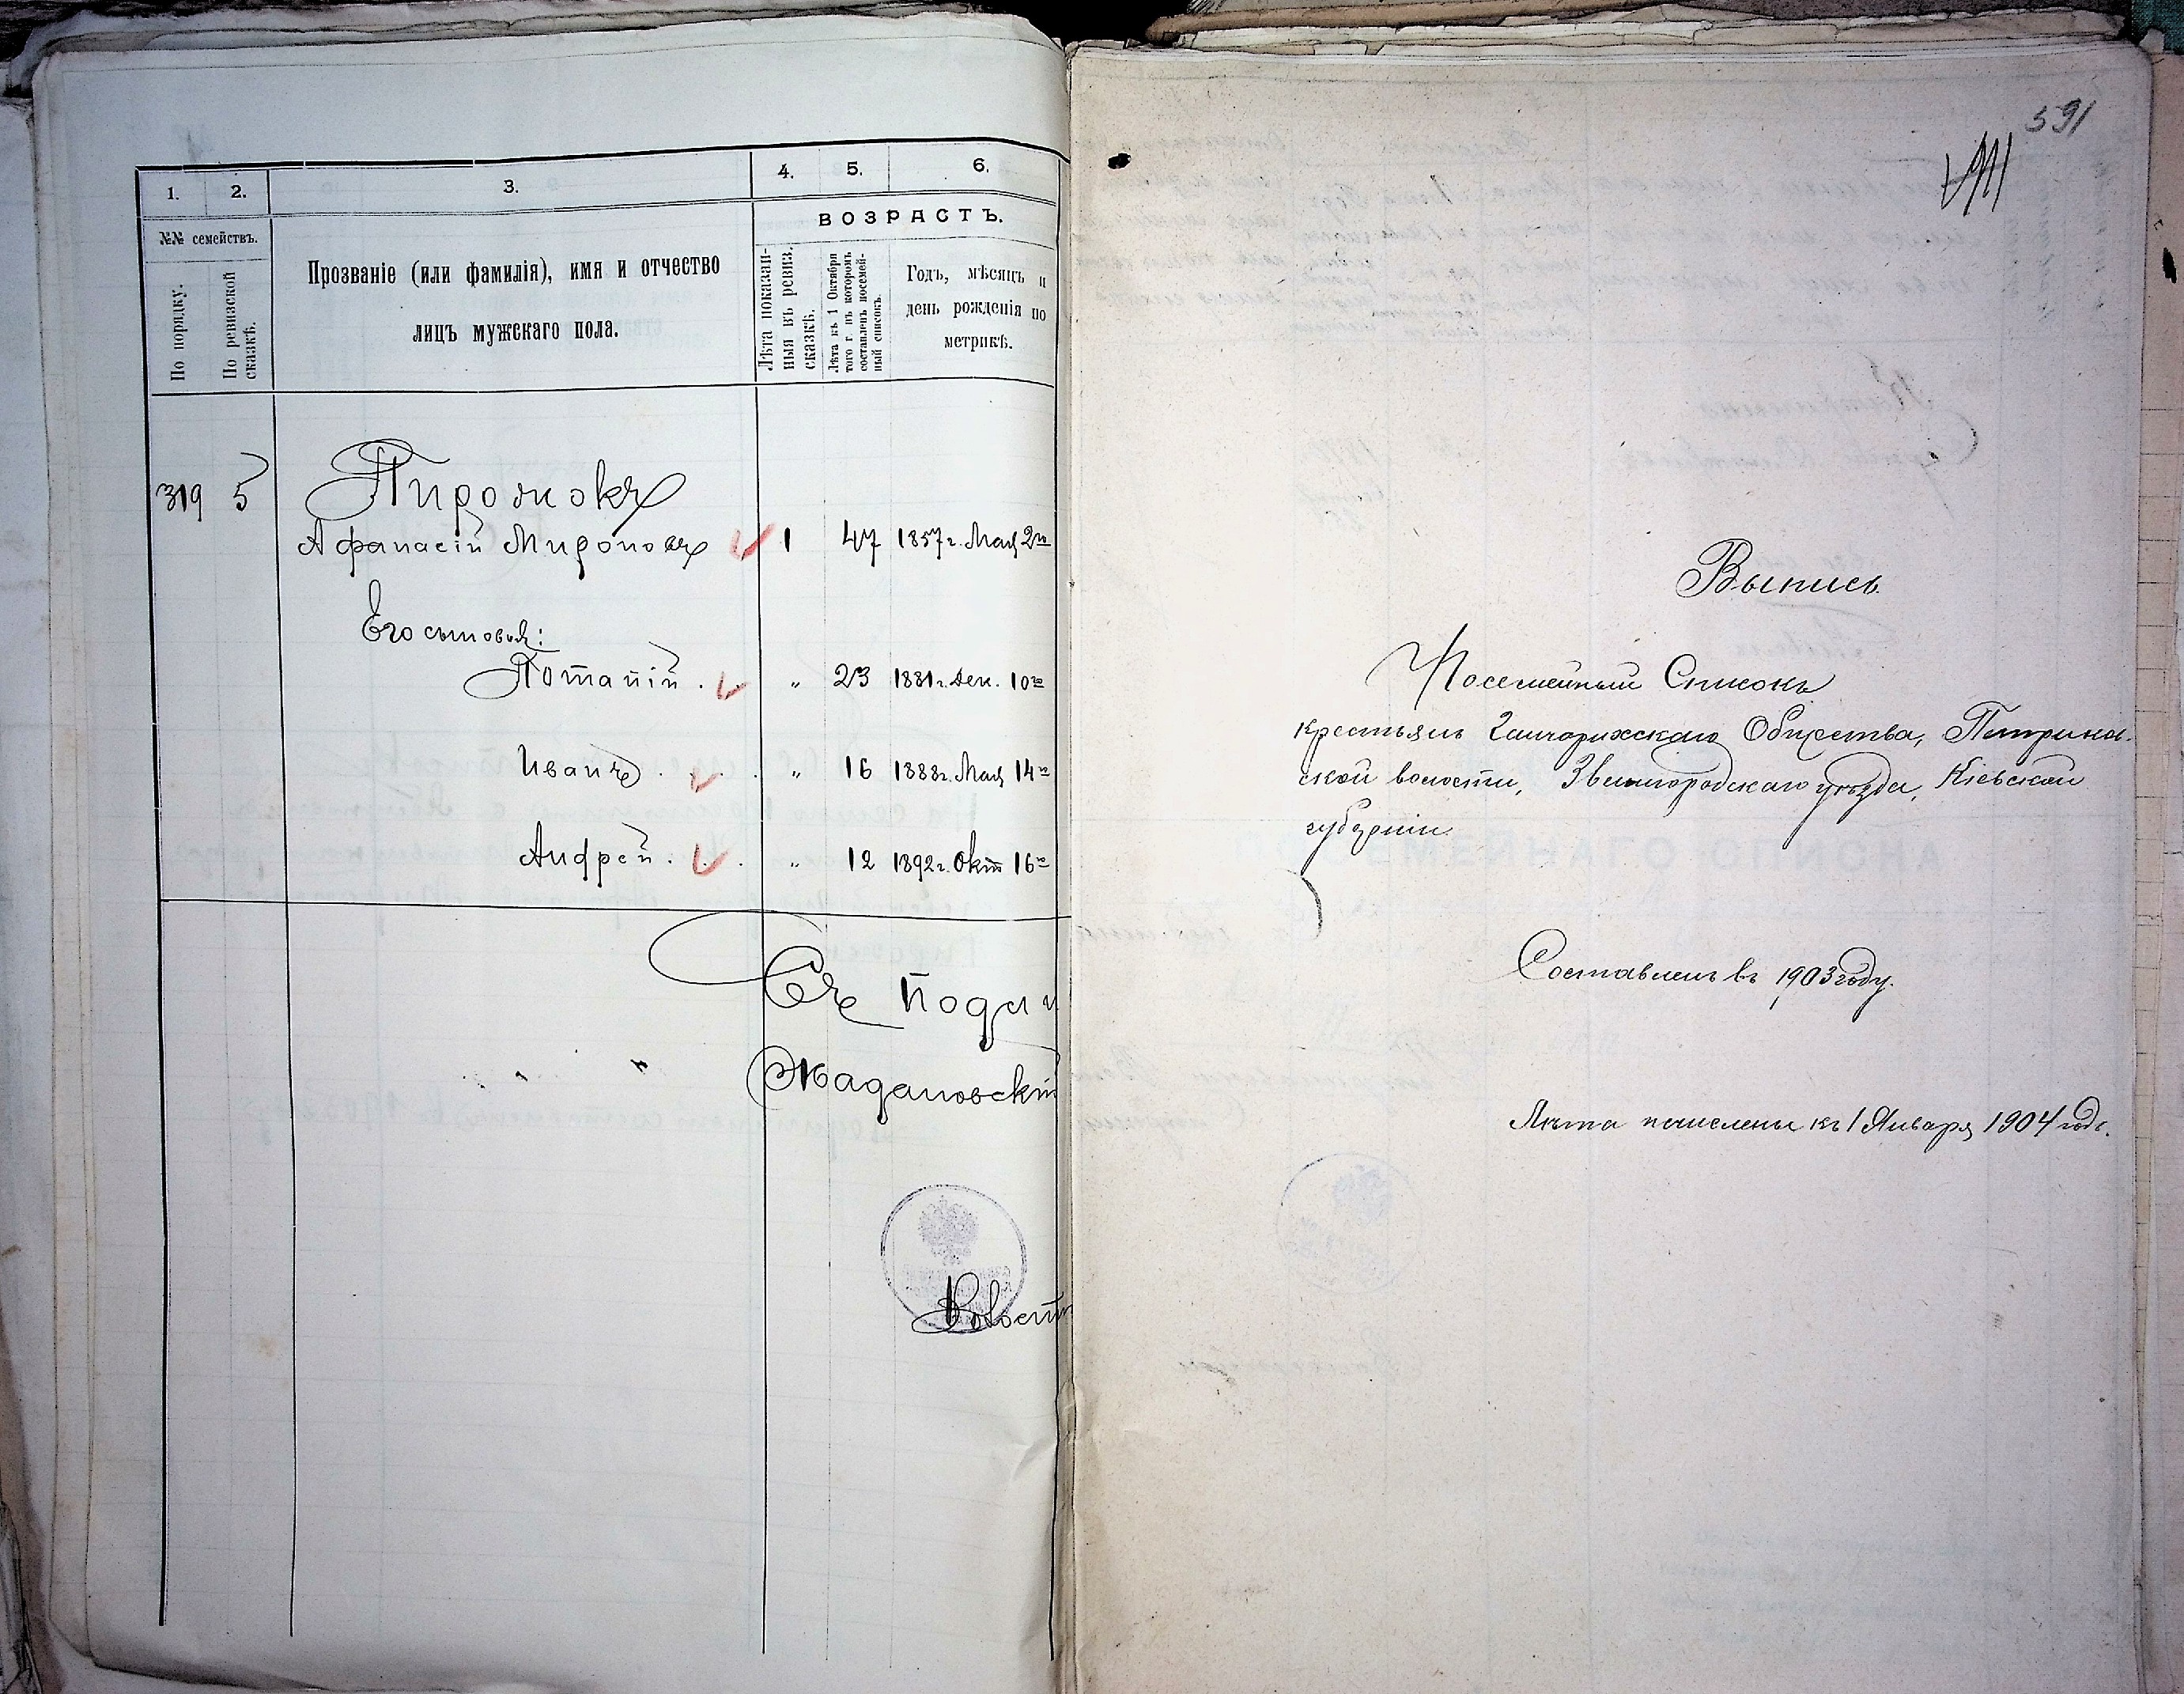 1.
2.
3.
4.
5.
6.
№№ семействъ.
По порядку.
По ревизской сказкѣ.
Прозваніе (или фамилія), имя и отчество
лицъ мужскаго пола.
ВОЗРАСТЪ.
Лѣта показан-
ныя въ ревиз.
сказкѣ.
Лѣта къ 1 Октября
того г. въ которомъ
составленъ посемей-
ный списокъ.
Годъ, мѣсяцъ и
день рожденія по
метрикѣ.
319 5 Пирожокъ
Афанасій Мироновъ 1 47 1857 г. Мая 2го
Его сыновья:
Потапій . „ 23 1881 г. Дек. 10го
Иванъ . . . „ 16 1888 г. Мая 14го
Андрей . . . „ 12 1892 г. Окт 16го
Съ подли
Жадановскій
Волостн
591
Выпись
Посемейный Списокъ
крестьянъ Общества,
ской волости, Звенигородскаго уѣзда, Кіевской
губерніи
Составленъ въ 1903 году.
Лѣта исчислены къ 1 Января 1904 года.